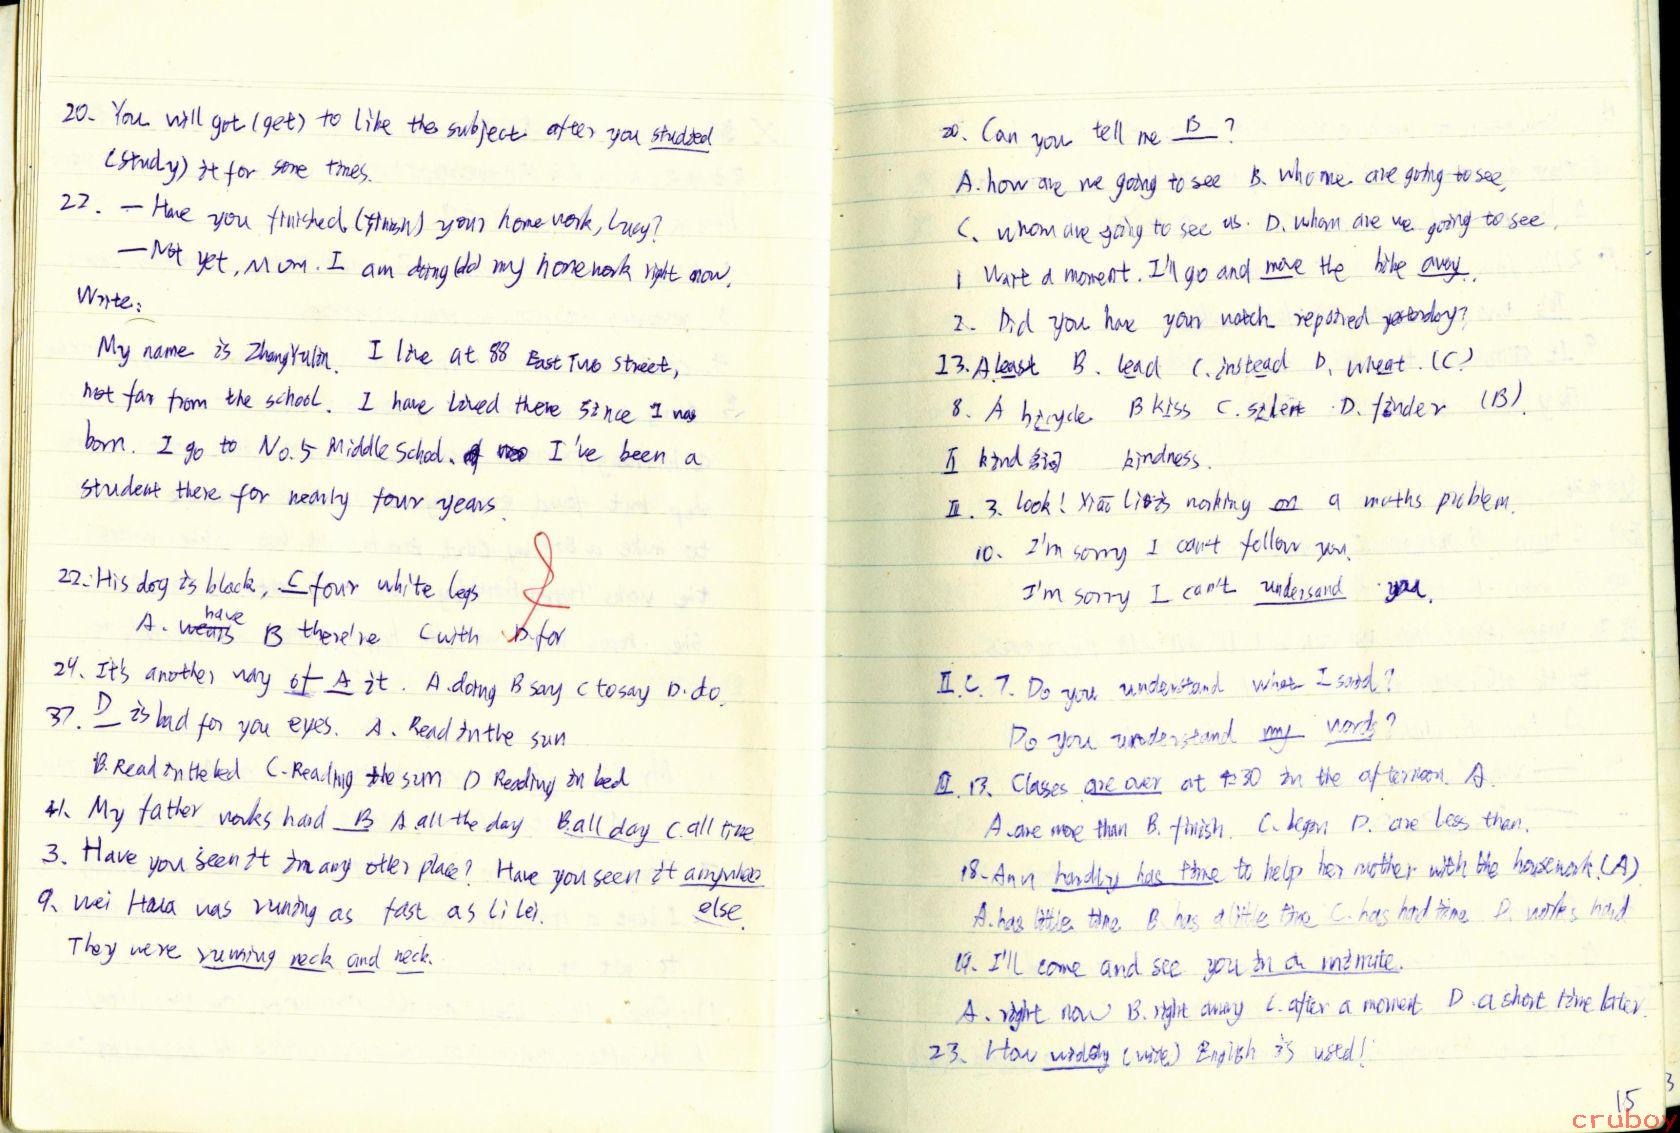 20. You will got (get) to like the subject after you studied
(study) it for some times.
22. — Have you finished (finish) your homework, Lucy?
— Not yet, Mum. I am doing (do) my homework right now.
Write:
My name is ZhangYulin. I live at 88 East Two Street,
not far from the school. I have lived there since I was
born. I go to No.5 Middle School. I've been a
student there for nearly four years.
22. His dog is black, C four white legs
have
A. wears B there're C with D for
24. It's another way of A it. A. doing B say C to say D. do.
37. D is bad for you eyes. A. Read in the sun
B. Read in the bed C. Reading the sun D Reading in bed
41. My father works hard B A. all the day B. all day C. all time
3. Have you seen it in any other place? Have you seen it anywhere
9. Wei Hua was runing as fast as Li Lei. else.
They were running neck and neck.
20. Can you tell me B ?
A. how are we going to see B. who we are going to see,
C. whom are going to see us. D. whom are we going to see.
1 Wait a moment. I'll go and move the bike away.
2. Did you have your watch repaired yesterday?
13. A least B. lead C. instead D. wheat. (C)
8. A bicycle B kiss C. silent D. finder (B).
II kind 名词 kindness.
III. 3. look! Xiao Li is working on a maths problem.
10. I'm sorry I can't follow you.
I'm sorry I can't undersand you.
II. C. 7. Do you understand what I said?
Do you understand my words?
III. 13. Classes are over at 4:30 in the afternoon. A.
A. are more than B. finish. C. began D. are less than.
18. Ann hardly has time to help her mother with the housework. (A)
A. has little time B. has a little time C. has had time D. works hard
19. I'll come and see you in a minute.
A. right now B. right away C. after a moment D. a short time later.
23. How widely (wide) English is used!
15
3
cruboy